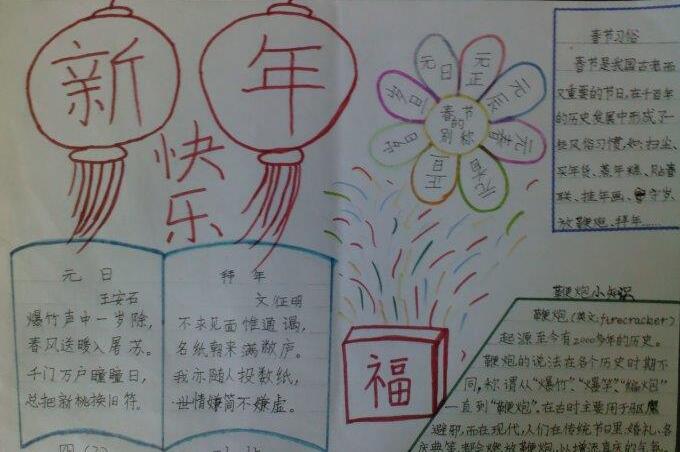 新年
快乐
春节的别称
元日
元正
元辰
元春
元首
正旦
岁首
年旦
春节习俗
春节是我国古老而
又重要的节日,在千百年
的历史发展中形成了一
些风俗习惯,如:扫尘、
买年货、蒸年糕、贴春
联、挂年画、守岁、
放鞭炮、拜年……
元 日
王安石
爆竹声中一岁除,
春风送暖入屠苏。
千门万户曈曈日,
总把新桃换旧符。
拜 年
文征明
不求见面惟通谒,
名纸朝来满敝庐。
我亦随人投数纸,
世情嫌简不嫌虚。
福
鞭炮小知识
鞭炮,(英文:firecracker)
起源至今有2000多年的历史。
鞭炮的说法在各个历史时期不
同,称谓从“爆竹”、“爆竿”、“编火囮”
一直到“鞭炮”。在古时主要用于驱魔
避邪,而在现代,人们在传统节日里、婚礼、各